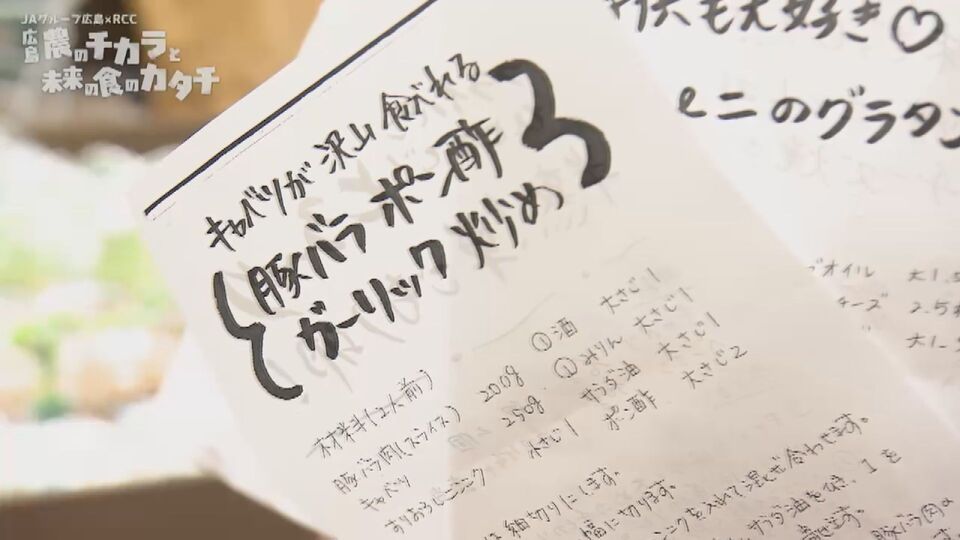 JAグループ広島×RCC
広島 農のチカラと
未来の食のカタチ
キャベツが沢山食べれる
豚バラ ポン酢
ガーリック炒め
材料(2人前)
豚バラ肉(スライス) 200g
キャベツ 250g
すりおろしニンニク 小さじ1
①酒 大さじ1
①みりん 大さじ1
サラダ油 大さじ1
ポン酢 大さじ2
は細切りにします。
幅に切ります。
ンニクを入れて混ぜ合わせます。
サラダ油をひき、1を
豚バラ肉の
も大好き♡
ミニのグラタン
オイル 大1.5
チーズ 2.5